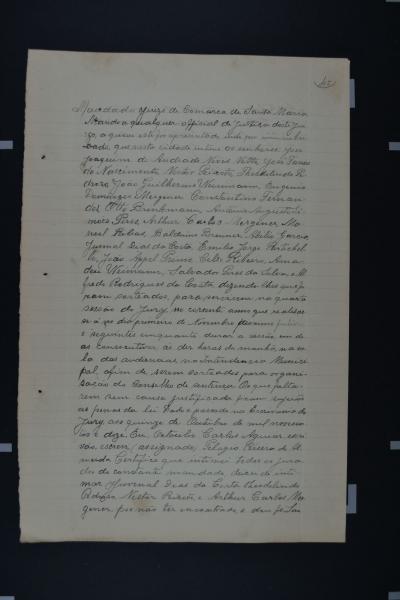 45
Mandado Juiz de Comarca de Santa Maria
Mando a qualquer official de Justiça deste Jui-
zo, a quem este for apresentado indo por
que nesta cidade intime os senhores
Joaquim de Andrade Neves Netto, João
do Nascimento, Nestor Peixoto, Theodolindo Pe-
droso João Guilherme Niemann, Eugenio
Domingos Mergener Constantino Fernan-
Otto Brinkmann, Antonio Augusto Si-
Pires Arthur Carlos Mergener Ma-
noel Balduino Brenner Abilio Garcia
Juvenal Dias da Costa, Emilio Jorge
João Appel Primo Ribeiro, Ama-
deu Niemann, Salvador Pires da Silva, Al-
fredo Rodrigues da Costa, dizendo-lhes que fo-
ram sorteados, para servirem na quarta
sessão do Jury no corrente anno que realisar-
se á no dia primeiro de Novembro proximo
e seguintes enquanto durar a sessão em di-
as consecutivos as dez horas da manhã, na sa-
la das audiencias na Intendencia Munici-
pal, afim de serem sorteados para organi-
sação do Conselho de sentença Os que falta-
rem sem causa justificada ficam sujeitos
as penas da lei Dado e passado no do
Jury aos quinze de Outubro de mil novecen-
tos e doze. Eu Carlos Aguiar escri-
vão, escrevi (assignado) Pelagio Pereira de Al-
meida Certifico que intimei todos os jura-
dos do constante mandado deixando de inti-
mar Juvenal Dias da Costa Theodolindo
Pedroso Nestor Peixoto e Arthur Carlos Mer-
gener por não ter encontrado e dou fé